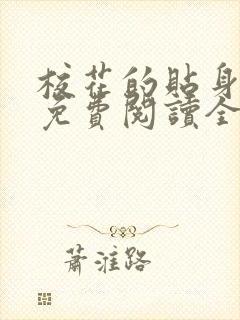 校花的貼身
免費閱讀全
蕭淮路